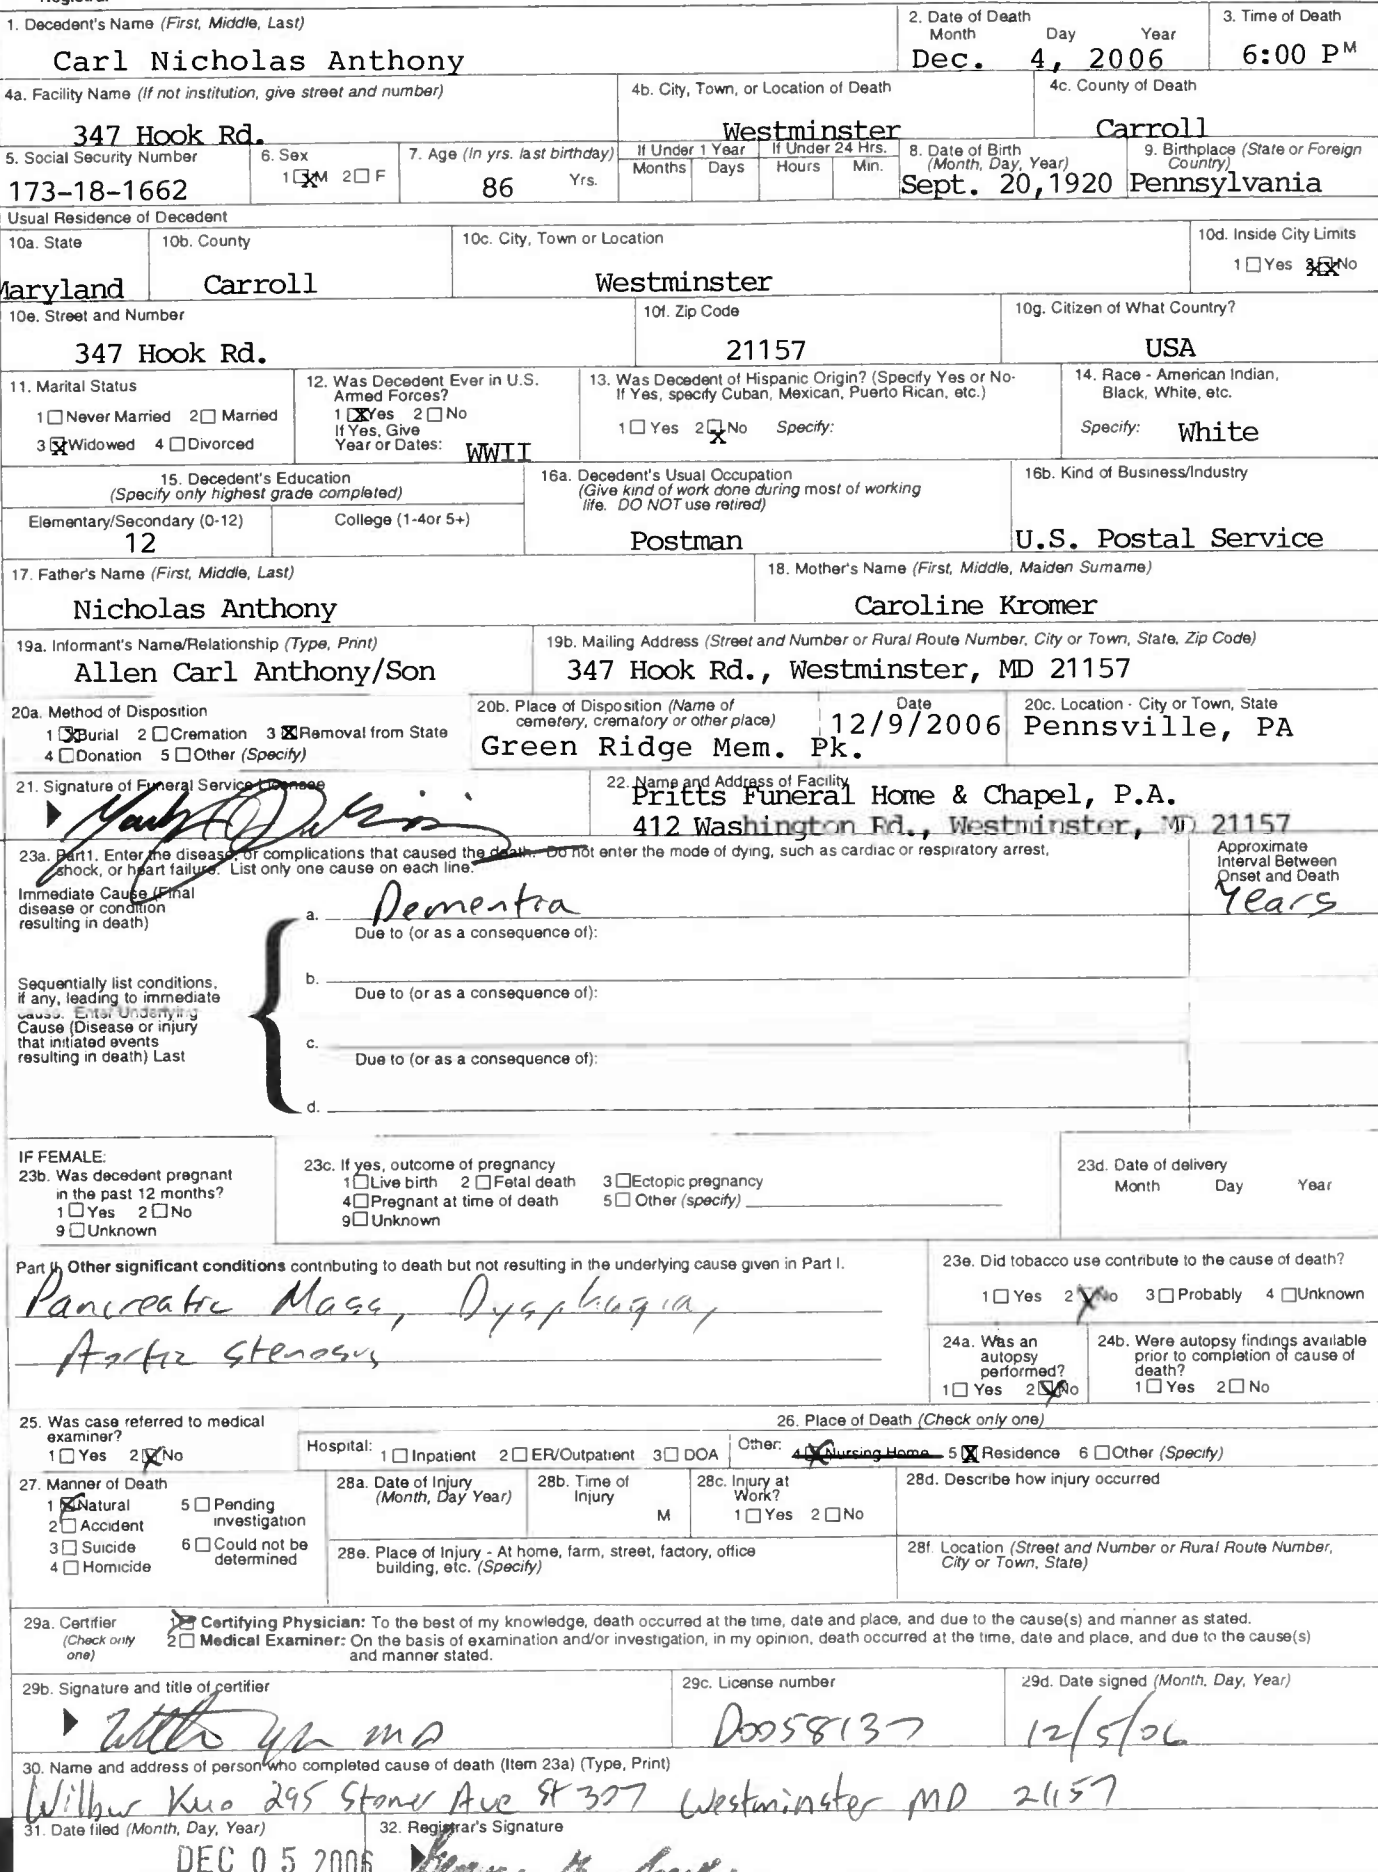 1. Decedent's Name (First, Middle, Last)
Carl Nicholas Anthony
2. Date of Death
Month Day Year
Dec. 4, 2006
3. Time of Death
6:00 PM
4a. Facility Name (If not institution, give street and number)
347 Hook Rd.
4b. City, Town, or Location of Death
Westminster
4c. County of Death
Carroll
5. Social Security Number
173-18-1662
6. Sex
1 ☒ M 2 ☐ F
7. Age (In yrs. last birthday)
86 Yrs.
If Under 1 Year
Months Days
If Under 24 Hrs.
Hours Min.
8. Date of Birth
(Month, Day, Year)
Sept. 20,1920
9. Birthplace (State or Foreign
Country)
Pennsylvania
Usual Residence of Decedent
10a. State
Maryland
10b. County
Carroll
10c. City, Town or Location
Westminster
10d. Inside City Limits
1 ☐ Yes 2 ☒ No
10e. Street and Number
347 Hook Rd.
10f. Zip Code
21157
10g. Citizen of What Country?
USA
11. Marital Status
1 ☐ Never Married 2 ☐ Married
3 ☒ Widowed 4 ☐ Divorced
12. Was Decedent Ever in U.S.
Armed Forces?
1 ☒ Yes 2 ☐ No
If Yes, Give
Year or Dates: WWII
13. Was Decedent of Hispanic Origin? (Specify Yes or No-
If Yes, specify Cuban, Mexican, Puerto Rican, etc.)
1 ☐ Yes 2 ☒ No Specify:
14. Race - American Indian,
Black, White, etc.
Specify: White
15. Decedent's Education
(Specify only highest grade completed)
Elementary/Secondary (0-12)
12
College (1-4or 5+)
16a. Decedent's Usual Occupation
(Give kind of work done during most of working
life. DO NOT use retired)
Postman
16b. Kind of Business/Industry
U.S. Postal Service
17. Father's Name (First, Middle, Last)
Nicholas Anthony
18. Mother's Name (First, Middle, Maiden Surname)
Caroline Kromer
19a. Informant's Name/Relationship (Type, Print)
Allen Carl Anthony/Son
19b. Mailing Address (Street and Number or Rural Route Number, City or Town, State, Zip Code)
347 Hook Rd., Westminster, MD 21157
20a. Method of Disposition
1 ☒ Burial 2 ☐ Cremation 3 ☒ Removal from State
4 ☐ Donation 5 ☐ Other (Specify)
20b. Place of Disposition (Name of
cemetery, crematory or other place)
Green Ridge Mem. Pk.
Date
12/9/2006
20c. Location - City or Town, State
Pennsville, PA
21. Signature of Funeral Service Licensee
22. Name and Address of Facility
Pritts Funeral Home & Chapel, P.A.
412 Washington Rd., Westminster, MD 21157
23a. Part1. Enter the disease, or complications that caused the death. Do not enter the mode of dying, such as cardiac or respiratory arrest,
shock, or heart failure. List only one cause on each line.
Approximate
Interval Between
Onset and Death
Immediate Cause (Final
disease or condition
resulting in death)
a. Dementia
Years
Due to (or as a consequence of):
b.
Due to (or as a consequence of):
c.
Due to (or as a consequence of):
d.
Sequentially list conditions,
if any, leading to immediate
cause. Enter Underlying
Cause (Disease or injury
that initiated events
resulting in death) Last
IF FEMALE:
23b. Was decedent pregnant
in the past 12 months?
1 ☐ Yes 2 ☐ No
9 ☐ Unknown
23c. If yes, outcome of pregnancy
1 ☐ Live birth 2 ☐ Fetal death 3 ☐ Ectopic pregnancy
4 ☐ Pregnant at time of death 5 ☐ Other (specify)
9 ☐ Unknown
23d. Date of delivery
Month Day Year
Part II. Other significant conditions contributing to death but not resulting in the underlying cause given in Part I.
Pancreatic Mass, Dysphagia,
Aortic stenosis
23e. Did tobacco use contribute to the cause of death?
1 ☐ Yes 2 ☒ No 3 ☐ Probably 4 ☐ Unknown
24a. Was an
autopsy
performed?
1 ☐ Yes 2 ☒ No
24b. Were autopsy findings available
prior to completion of cause of
death?
1 ☐ Yes 2 ☐ No
25. Was case referred to medical
examiner?
1 ☐ Yes 2 ☒ No
26. Place of Death (Check only one)
Hospital: 1 ☐ Inpatient 2 ☐ ER/Outpatient 3 ☐ DOA Other: 4 ☒ Nursing Home 5 ☒ Residence 6 ☐ Other (Specify)
27. Manner of Death
1 ☒ Natural 5 ☐ Pending
investigation
2 ☐ Accident
3 ☐ Suicide 6 ☐ Could not be
determined
4 ☐ Homicide
28a. Date of Injury
(Month, Day Year)
28b. Time of
Injury
M
28c. Injury at
Work?
1 ☐ Yes 2 ☐ No
28d. Describe how injury occurred
28e. Place of Injury - At home, farm, street, factory, office
building, etc. (Specify)
28f. Location (Street and Number or Rural Route Number,
City or Town, State)
29a. Certifier
(Check only
one)
1 ☒ Certifying Physician: To the best of my knowledge, death occurred at the time, date and place, and due to the cause(s) and manner as stated.
2 ☐ Medical Examiner: On the basis of examination and/or investigation, in my opinion, death occurred at the time, date and place, and due to the cause(s)
and manner stated.
29b. Signature and title of certifier
MD
29c. License number
D0058137
29d. Date signed (Month, Day, Year)
12/5/06
30. Name and address of person who completed cause of death (Item 23a) (Type, Print)
Wilbur Kuo 295 Stoner Ave St 307 Westminster MD 21157
31. Date filed (Month, Day, Year)
DEC 05 2006
32. Registrar's Signature